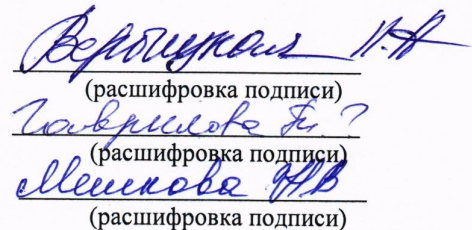 Вербицкая Н.А
(расшифровка подписи)
Гаврилова
(расшифровка подписи)
Мешкова Н В
(расшифровка подписи)